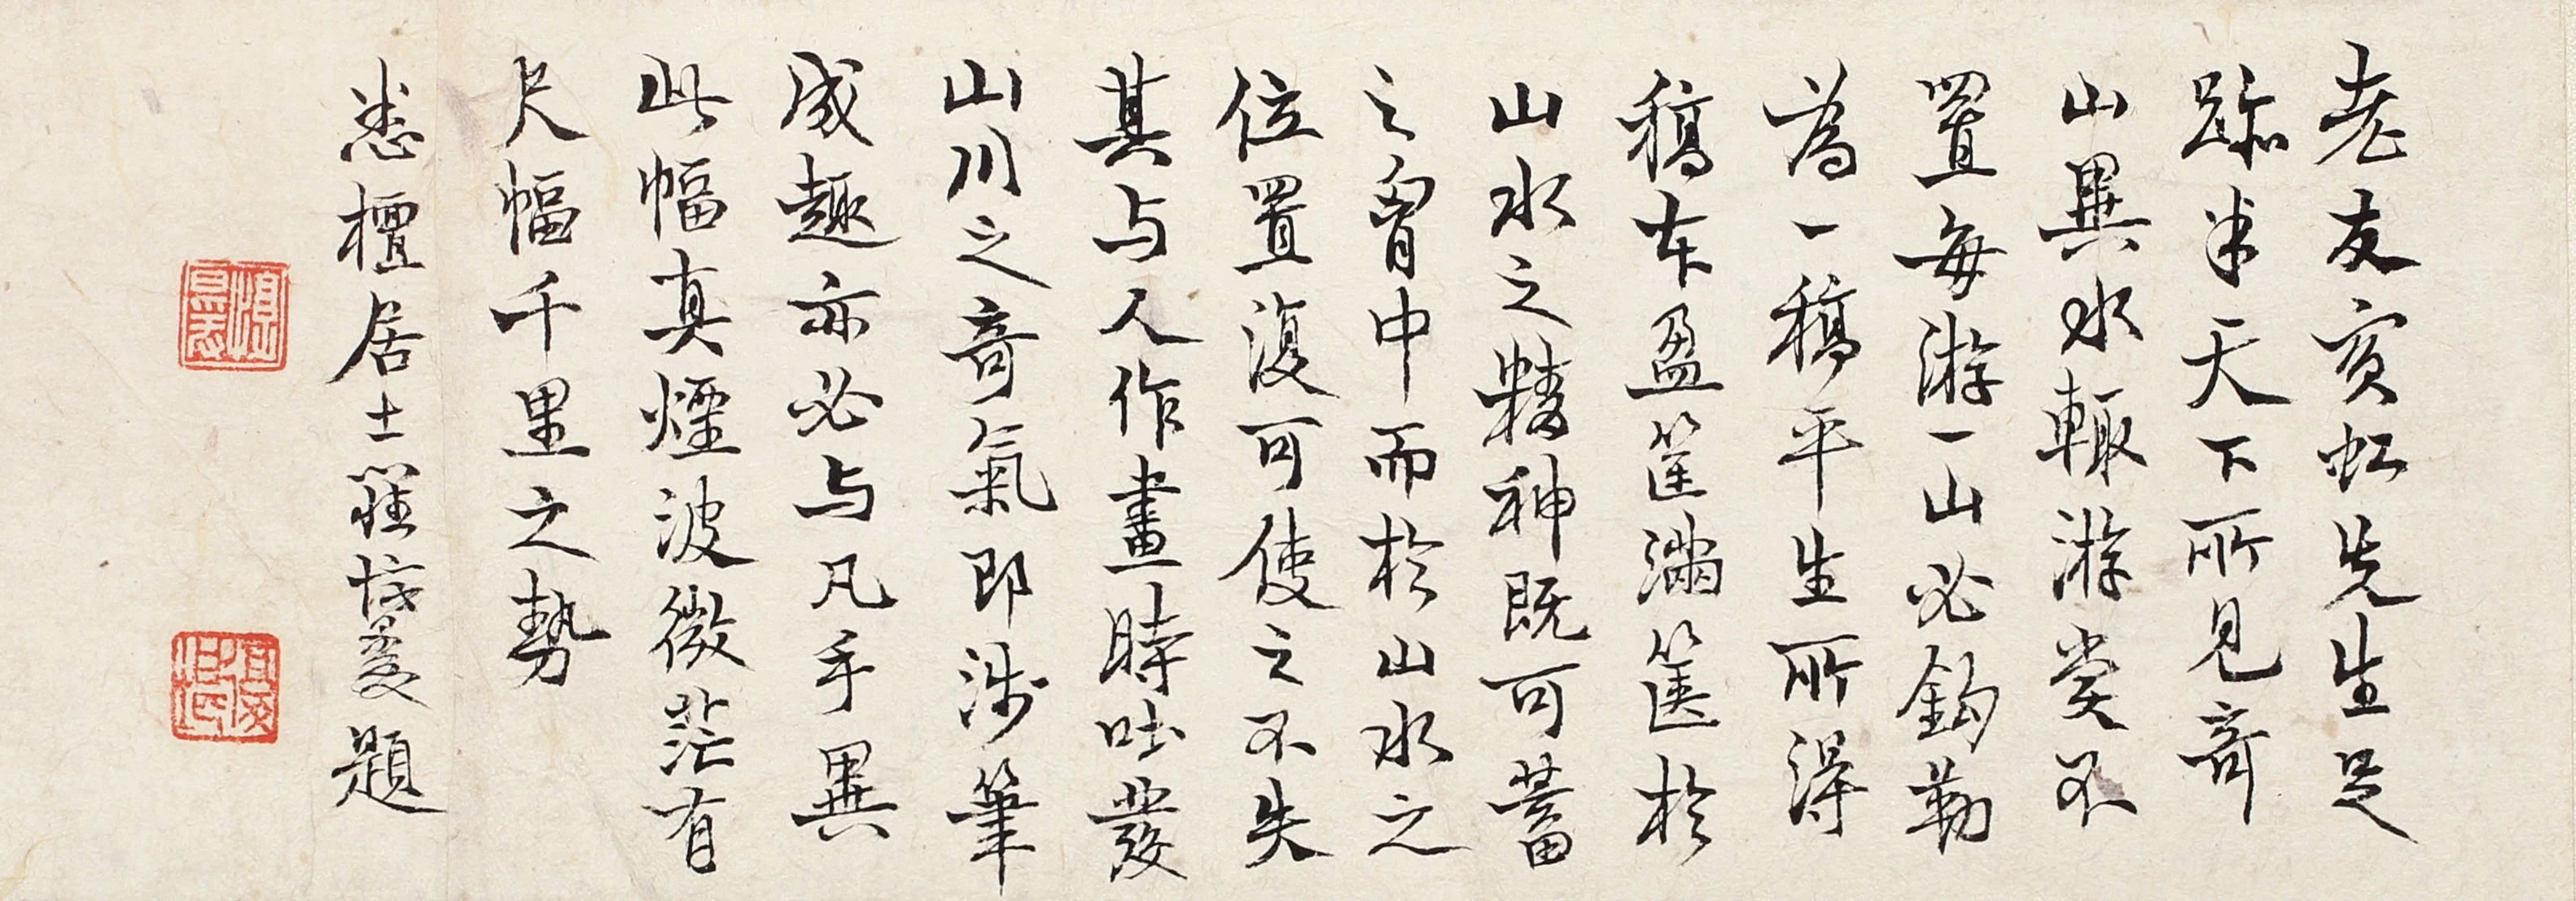 老友賓虹先生足
跡半天下所見奇
山異水輒游賞不
置每游一山必鈎勒
為一稿平生所得
稿本盈筐滿篋於
山水之精神既可蓄
之胷中而於山水之
位置復可使之不失
其与人作畫時吐發
山川之奇氣即涉筆
成趣亦必与凡手異
此幅真煙波微茫有
尺幅千里之勢
居士題